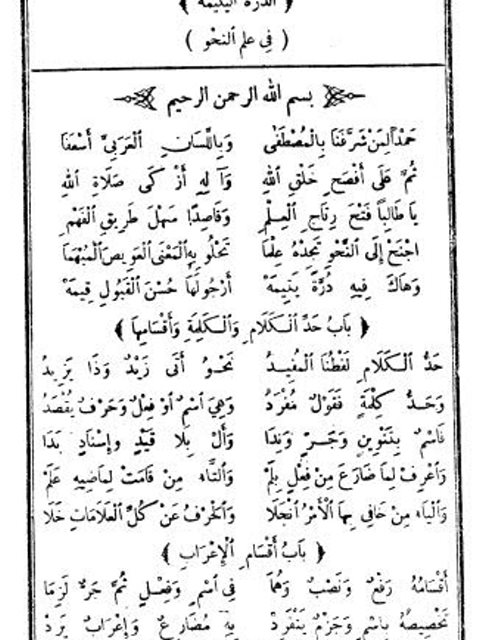 ﴿ الدرة اليتيمة ﴾
( فى علم النحو )
بسم الله الرحمن الرحيم
حَمْدًا لِمَنْ شَرَّفَنَا بِالْمُصْطَفَى وَبِاللِّسَانِ الْعَرَبِيِّ أَسْعَفَا
ثُمَّ عَلَى أَفْصَحِ خَلْقِ اللهِ وَآلِهِ أَزْكَى صَلَاةِ اللهِ
يَا طَالِبًا فَتْحَ رِتَاجِ الْعِلْمِ وَقَاصِدًا سَهْلَ طَرِيقِ الْفَهْمِ
اجْنَحْ إِلَى النَّحْوِ تَجِدْهُ عِلْمَا تَجْلُو بِهِ الْمَعْنَى الْعَوِيصَ الْمُبْهَمَا
وَهَاكَ فِيهِ دُرَّةً يَتِيمَهْ أَرْجُو لَهَا حُسْنَ الْقَبُولِ قِيمَهْ
﴿ بَابُ حَدِّ الْكَلَامِ وَالْكَلِمَةِ وَأَقْسَامِهَا ﴾
حَدُّ الْكَلَامِ لَفْظُنَا الْمُفِيدُ نَحْوُ أَتَى زَيْدٌ وَذَا يَزِيدُ
وَحَدُّ كِلْمَةٍ فَقَوْلٌ مُفْرَدُ وَهْيَ اسْمٌ أَوْ فِعْلٌ وَحَرْفٌ يُقْصَدُ
فَاسْمٌ بِتَنْوِينٍ وَجَرٍّ وَنِدَا وَأَلْ بِلَا قَيْدٍ وَإِسْنَادٍ بَدَا
وَاعْرِفْ لِمَا ضَارَعَ مِنْ فِعْلٍ بِلَمْ وَالتَّاءُ مِنْ قَامَتْ لِمَاضِيهِ عَلَمْ
وَالْيَاءُ مِنْ خَافِي بِهَا الْأَمْرُ انْجَلَا وَالْحَرْفُ عَنْ كُلِّ الْعَلَامَاتِ خَلَا
﴿ بَابُ أَقْسَامِ الْإِعْرَابِ ﴾
أَقْسَامُهُ رَفْعٌ وَنَصْبٌ وَهُمَا فِي اسْمٍ وَفِعْلٍ ثُمَّ جَرٌّ لَزِمَا
تَخْصِيصُهُ بِاسْمٍ وَجَزْمٌ يَنْفَرِدْ بِهِ مُضَارِعٌ وَإِعْرَابٌ يَرِدْ